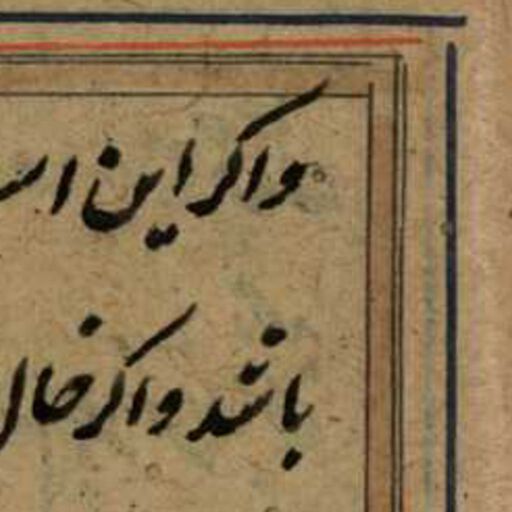 واكر این اس
باشد واكر خال